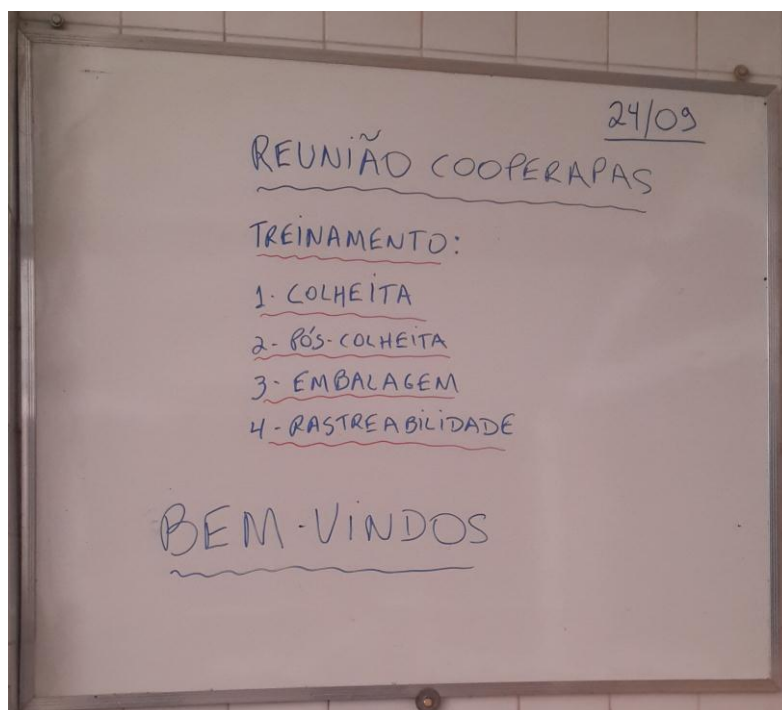 24/09
REUNIÃO COOPERAPAS
TREINAMENTO:
1. COLHEITA
2- PÓS-COLHEITA
3- EMBALAGEM
4- RASTREABILIDADE
BEM-VINDOS